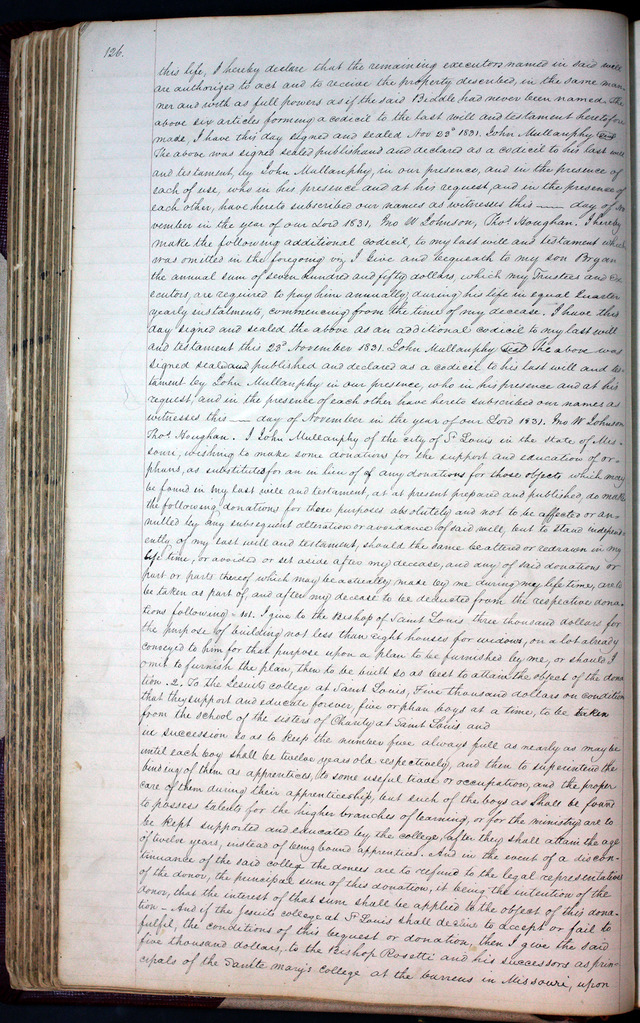 126.
this life, I hereby declare that the remaining executors named in said will
are authorized to act and to receive the property described, in the same man-
ner and with as full powers as if the said Biddle, had never been named. The
above six articles forming a codicil to the last will and testament heretofore
made, I have this day signed and sealed Nov 23d 1831. John Mullanphy Seal
The above was signed sealed publishand and declared as a codicil to his last will
and testament, by John Mullanphy, in our presence, and in the presence of
each of use, who in his presence and at his request, and in the presence of
each other, have hereto subscribed our names as witnesses this — day of No
vember in the year of our Lord 1831, Jno W Johnson, Thos. Houghan. I hereby
make the following additional codicil, to my last will and testament which
was omitted in the foregoing viz, I Give and bequeath to my son Bryan
the annual sum of seven hundred and fifty dollars, which my Trustees and Ex
ecutors, are required to pay him annually, during his life in equal Quarter
yearly instalments, commencing from the time of my decease. I have this
day signed and sealed the above as an additional codicil to my last will
and testament this 23d November 1831. John Mullanphy Seal The above was
signed sealed and published and declared as a codicil to his last will and tes-
tament by John Mullanphy in our presence, who in his presence and at his
request, and in the presence of each other have hereto subscribed our names as
witnesses this — day of November in the year of our Lord 1831. Jno W Johnson
Thos. Houghan. I John Mullanphy of the city of St Louis in the state of Mis-
souri, wishing to make some donations for the support and education of or-
phans, as substitutes for an in lieu of of any donations for those objects which may
be found in my last will and testament, at at present prepared and published, do make
the following donations for those purposes absolutely and not to be affected or an-
nulled by any subsequent alteration or avoidance of said will, but to stand independ-
ently of my last will and testament, should the same be altered or redrawn in my
life time, or avoided or set aside after my decease, and any of said donations or
part or parts thereof which may be actually made by me during my life time, are to
be taken as part of, and after my decease to be deducted from the respective dona-
tions following - 1st. I give to the Bishop of Saint Louis three thousand dollars for
the purpose of building not less than eight houses for widows, on a lot already
conveyed to him for that purpose upon a plan to be furnished by me, or should I
omit to furnish the plan, then to be built so as best to attain the object of the dona
tion. 2. To the Jesuits college at Saint Louis, Five thousand dollars on condition
that they support and educate forever, five orphan boys at a time, to be taken
from the school of the sisters of Charity at Saint Louis and
in succession so as to keep the number five always full as nearly as may be
until each boy shall be twelve years old respectively, and then to superintend the
binding of them as apprentices, to some useful trade or occupation, and the proper
care of them during their apprenticeship, but such of the boys as shall be found
to possess talents for the higher branches of learning, or for the ministry are to
be kept supported and educated by the college, after they shall attain the age
of twelve years, instead of being bound apprentices. And in the event of a discon-
tinuance of the said college the donees are to refund to the legal representatives
of the donor, the principal sum of this donation, it being the intention of the
donor, that the interest of that sum shall be applied to the object of this dona-
tion - And if the Jesuits college at St Louis shall decline to accept or fail to
fulfil, the conditions of this bequest or donation, then I give the said
five thousand dollars, to the Bishop Rosetti and his successors as prin-
cipals of the Saulte mary's college at the barrens in Missouri, upon